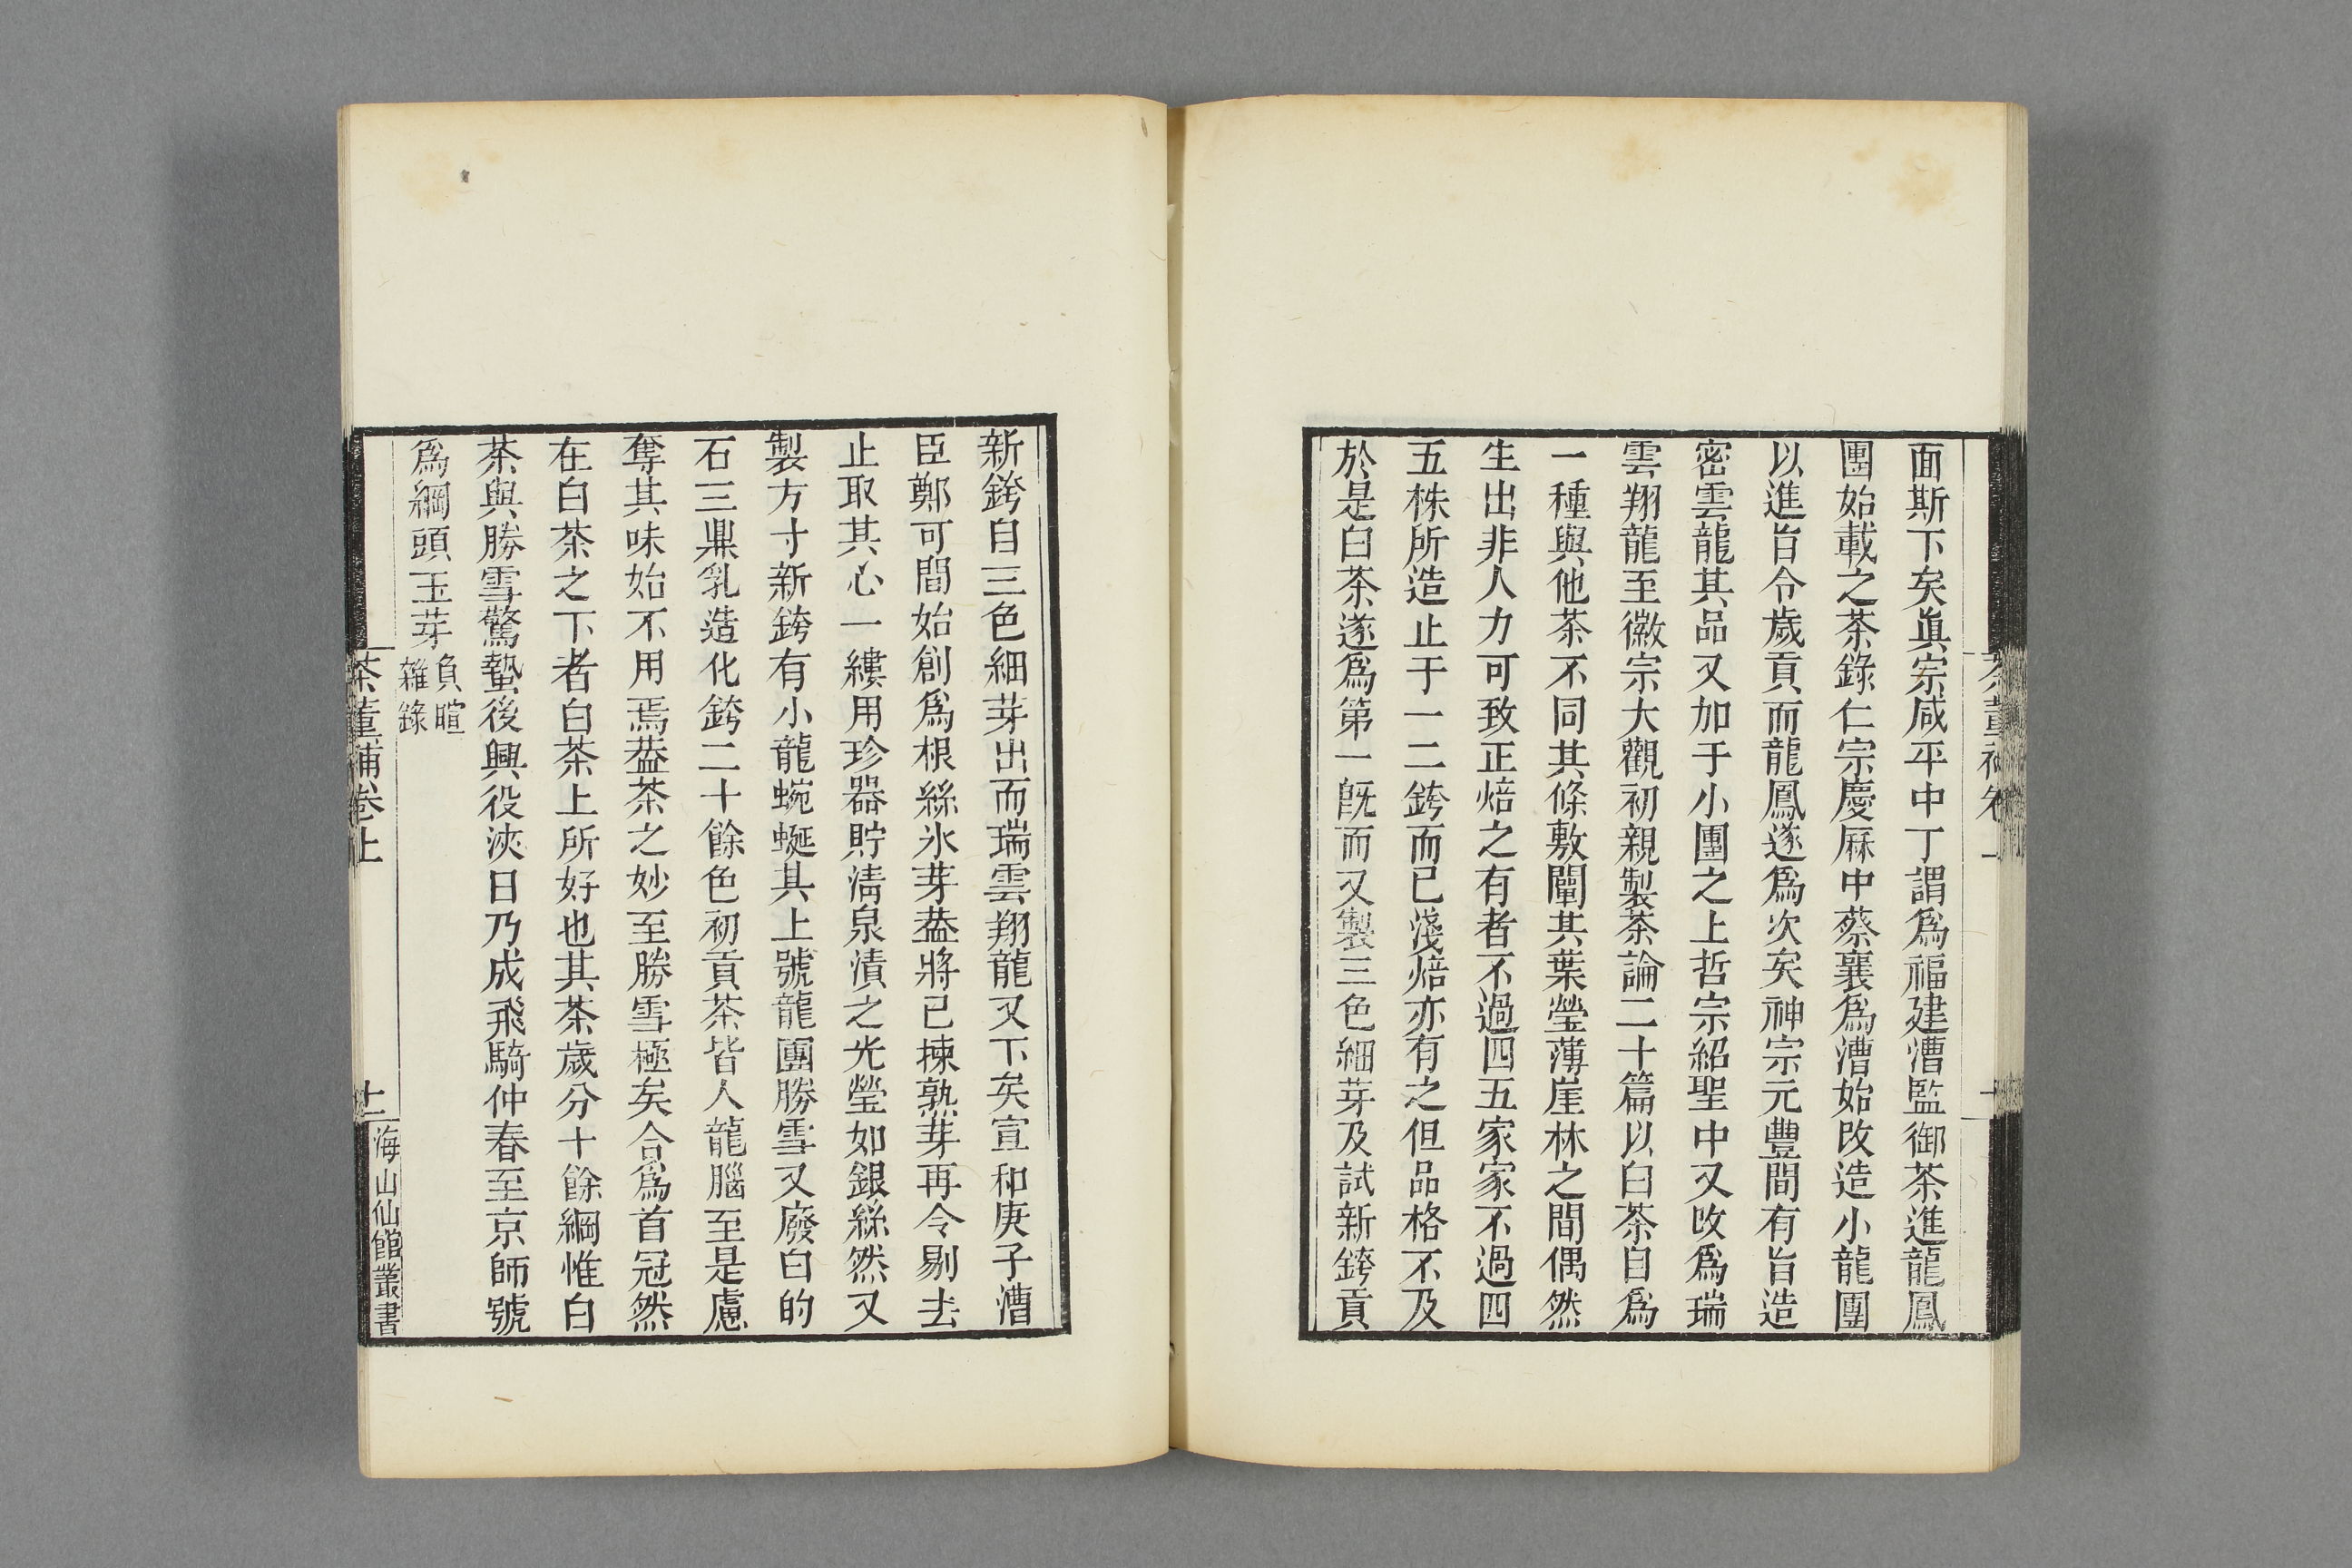 面斯下矣眞宗咸平中丁謂爲福建漕監御茶進龍鳳
團始載之茶錄仁宗慶厤中蔡襄爲漕始改造小龍團
以進旨令歲貢而龍鳳遂爲次矣神宗元豐間有旨造
密雲龍其品又加于小團之上哲宗紹聖中又攺爲瑞
雲翔龍至徽宗大觀初親製茶論二十篇以白茶自爲
一種與他茶不同其條敷闡其葉瑩薄崖林之間偶然
生出非人力可致正焙之有者不過四五家家不過四
五株所造止于一二銙而已淺焙亦有之但品格不及
於是白茶遂爲第一旣而又製三色細芽及試新銙貢
新銙自三色細芽出而瑞雲翔龍又下矣宣和庚子漕
臣鄭可間始創爲根絲氷芽葢將已揀熟芽再令剔去
止取其心一縷用珍器貯淸泉漬之光瑩如銀絲然又
製方寸新銙有小龍蜿蜒其上號龍團勝雪又廢白的
石三鼎乳造化銙二十餘色初貢茶皆人龍腦至是慮
奪其味始不用焉葢茶之妙至勝雪極矣合爲首冠然
在白茶之下者白茶上所好也其茶歲分十餘綱惟白
茶與勝雪驚蟄後興役浹日乃成飛騎仲春至京師號
爲綱頭玉芽
負暄
雜錄
茶董補卷上
十二
海山仙館叢書